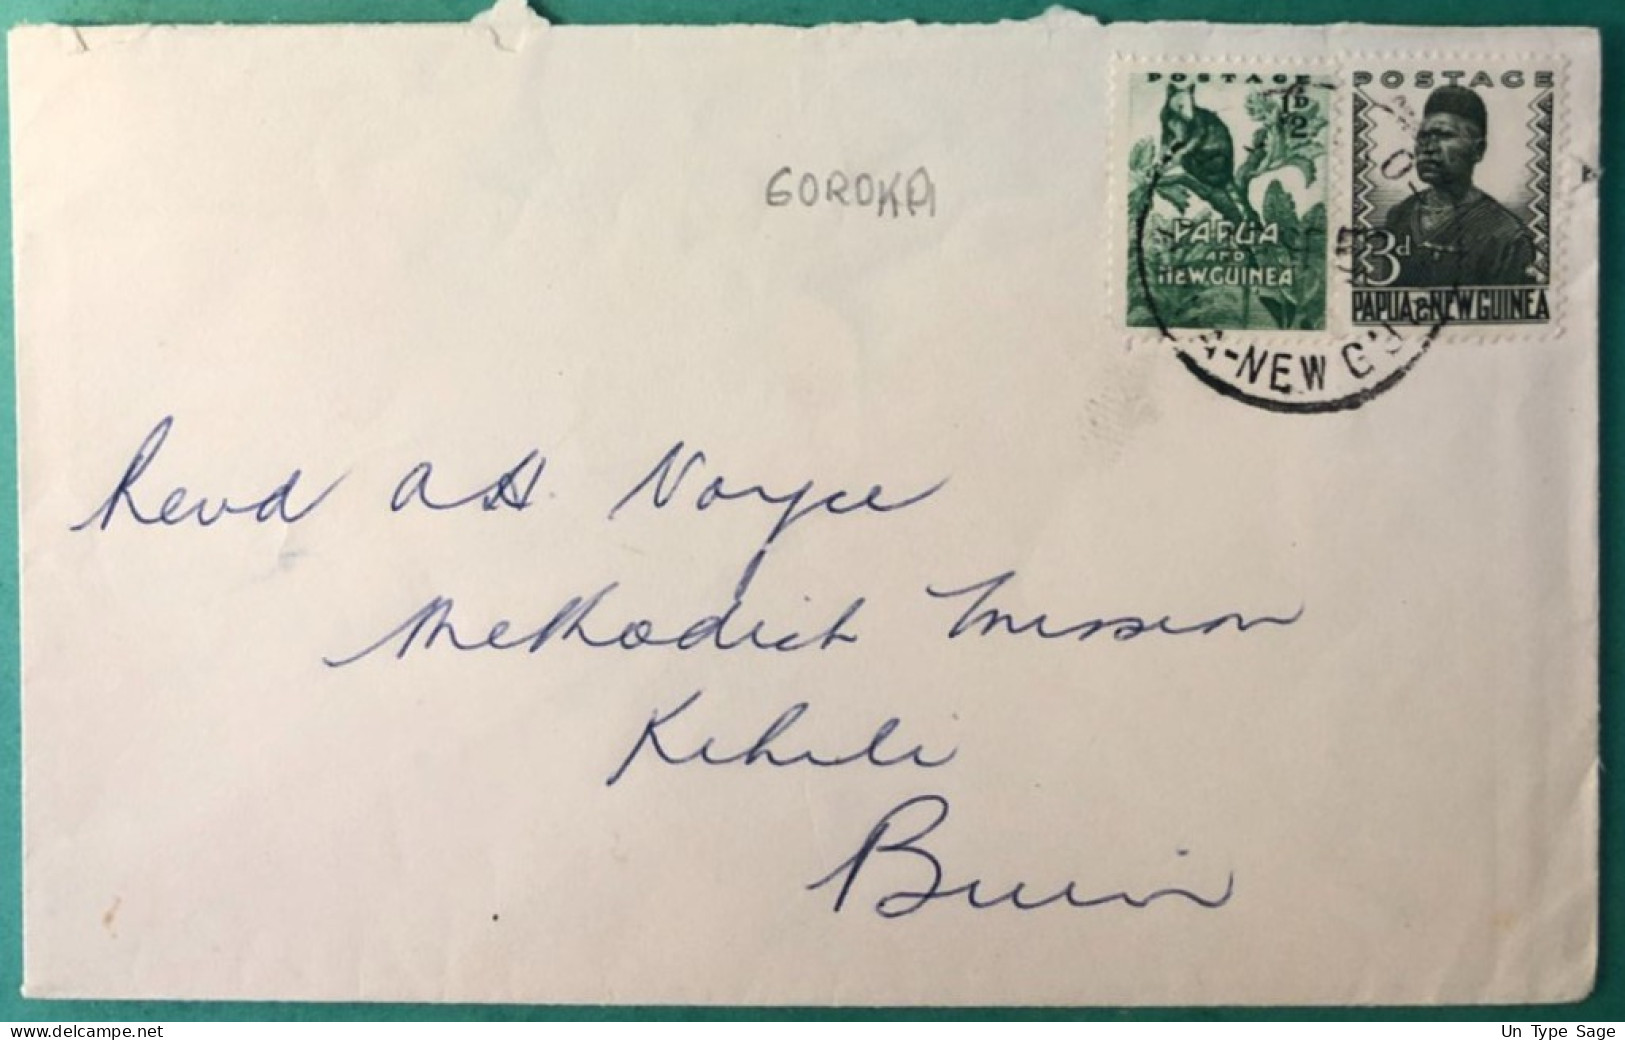 POSTAGE
½D
PAPUA
AND
NEW GUINEA
POSTAGE
3d
PAPUA & NEW GUINEA
A-NEW G
GOROKA
Revd A H. Voyce
Methodist Mission
Kihili
Buin
www.delcampe.net
Un Type Sage